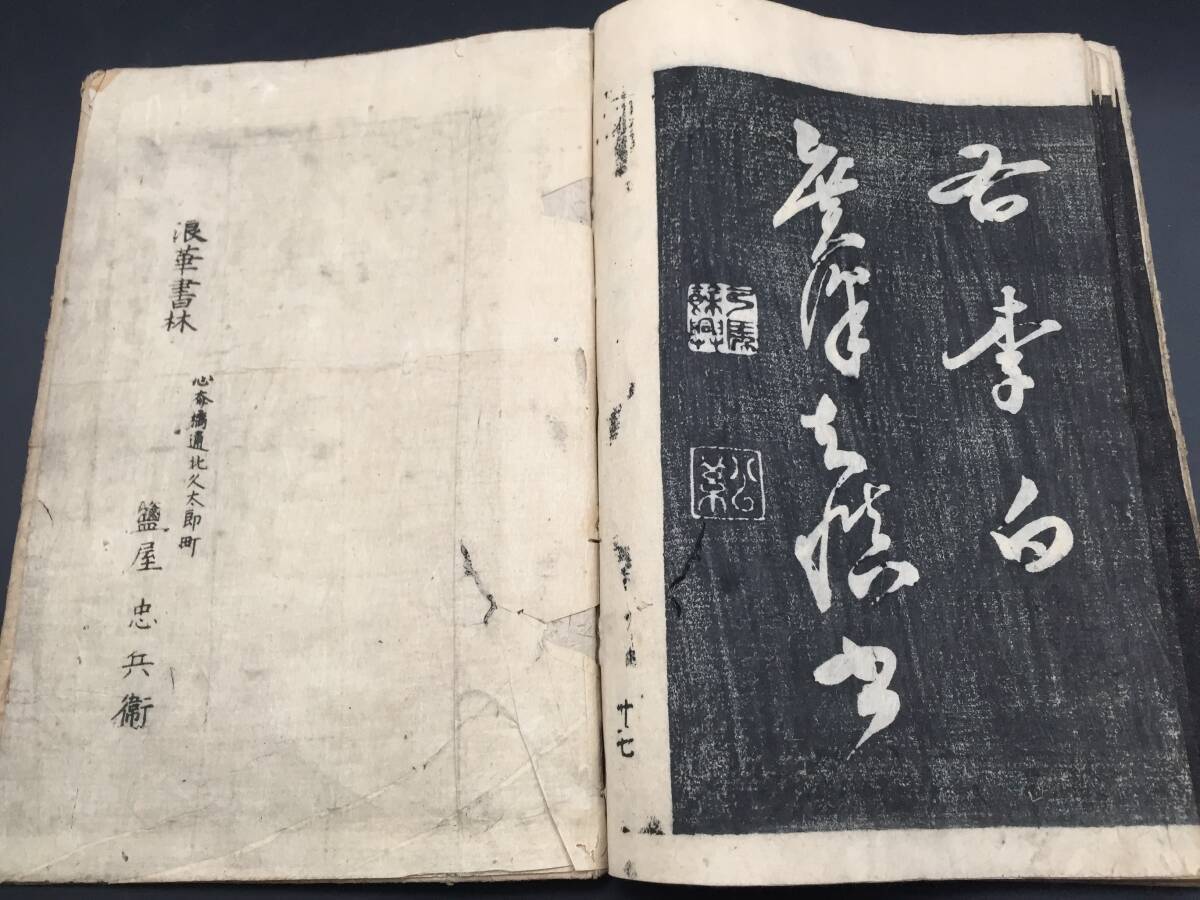 右李白
廣澤知慎書
廿七
浪華書林
心斎橋通北久太郎町
鹽屋忠兵衛